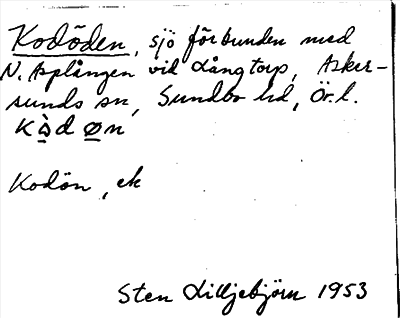 Kodöden, sjö förbunden med
N. Asplången vid Långtorp, Asker-
sunds sn, Sundbo hd, Ör. l.
Kòdøn
Kodön, ek
Sten Lilljebjörn 1953